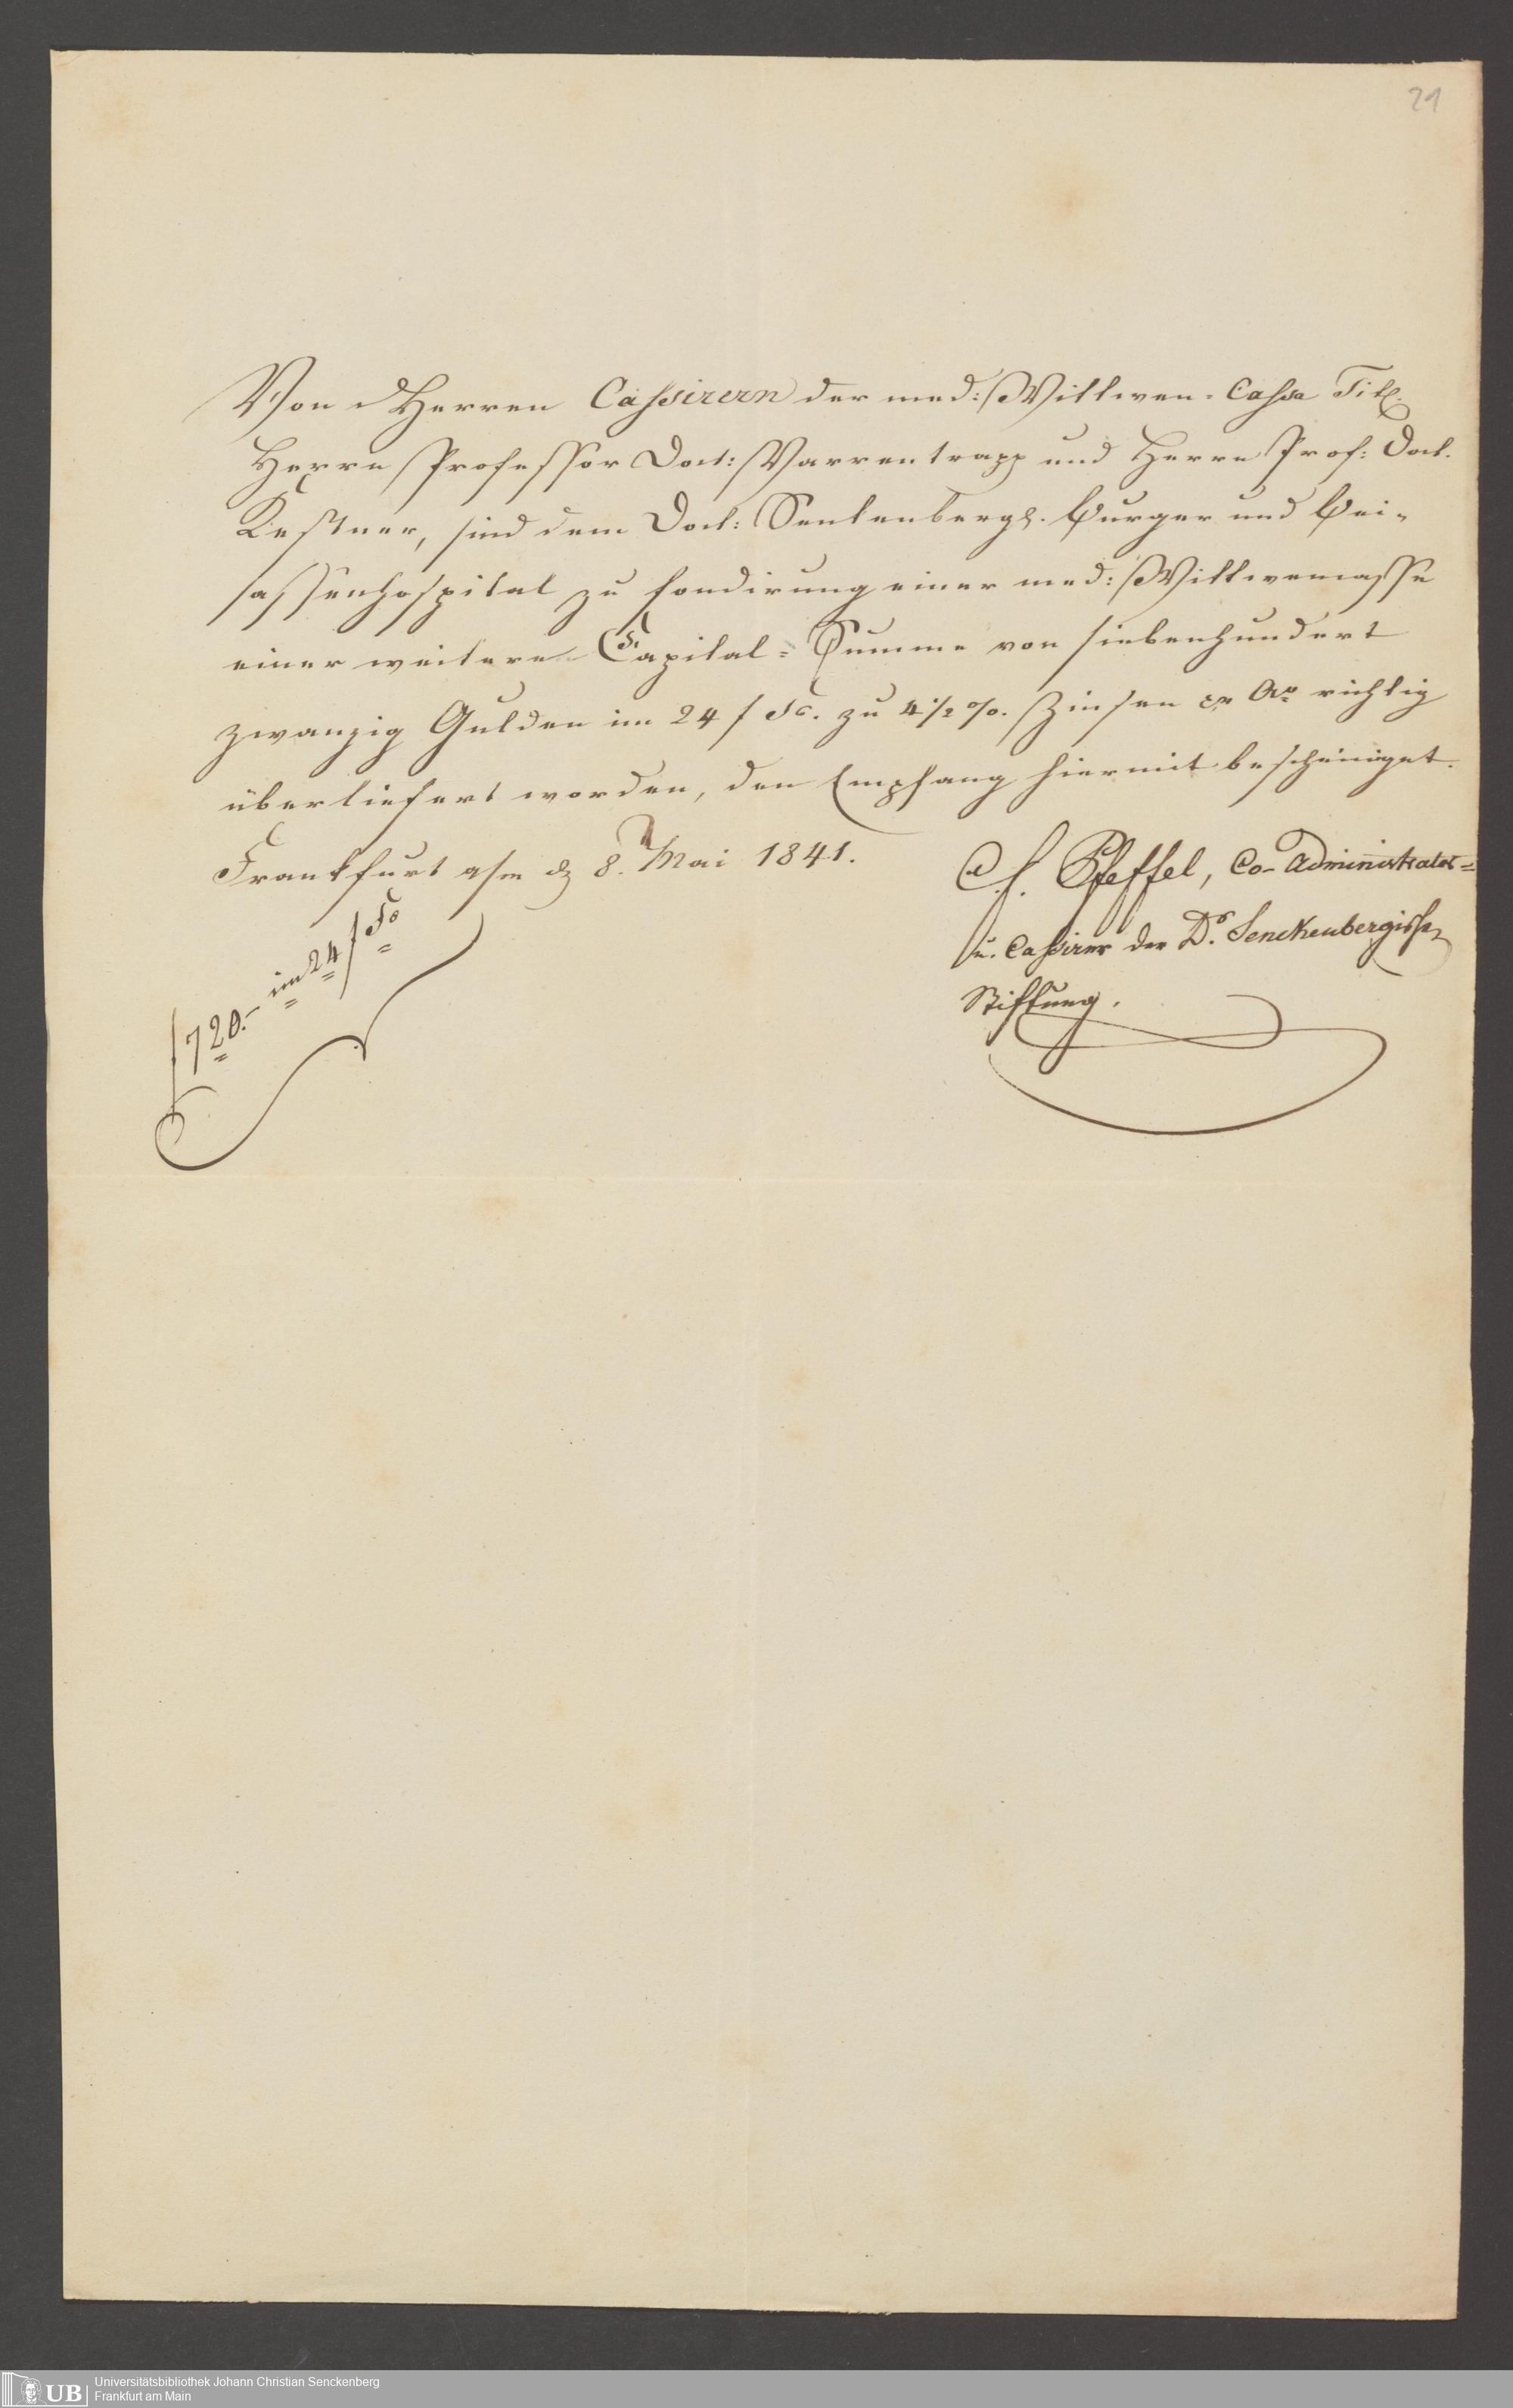 21
Von Herren Cassirern der med: Wittwen-Cassa Titl.
Herrn Professor Doct: Varrentrapp und Herrn Prof: Doct.
Kestner, sind dem Doct: Senkenbergs. Burger und Bei-
sassenhospital zu fondirung einer med: Wittwemasse
einer weitern Capital-Summe von siebenhundert
zwanzig Gulden im 24 f Fs. zu 4 1/2 %. Zinsen pr Ao richtig
überliefert worden, den Empfang hiermit bescheiniget.
Frankfurt a/m d 8. Mai 1841.
C. f. Pfeffel, Co-Administrator
u. Cassirer der Dr. Senckenbergischen
Stiftung.
f 720.- im 24 f Fs
UB
Universitätsbibliothek Johann Christian Senckenberg
Frankfurt am Main